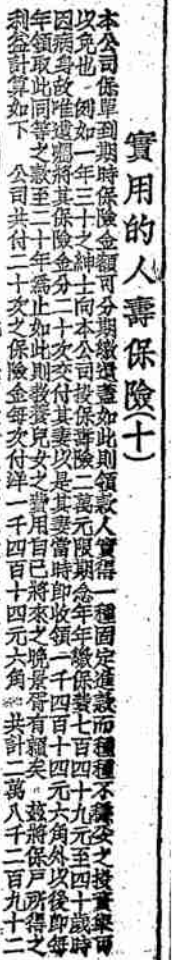 實用的人壽保險(十)
本公司保單到期時保險金額可分期繳還蓋如此則領款人實得一種固定進款而種種不穩妥之投資舉可
以免也 例如一年三十之紳士向本公司投保壽險二萬元限期念年年繳保費七百四十九元至四十歲時
因病身故唯遺囑將其保險金分二十次交付其妻以是其妻當時即收領一千四百十四元六角外以後即每
年領取此同等之款至二十年為止如此則教養兒女之費用自已將來之晚景胥有賴矣 茲將保戶所得之
利益計算如下 公司共付二十次之保險金每次付洋一千四百十四元六角 共計二萬八千二百九十二